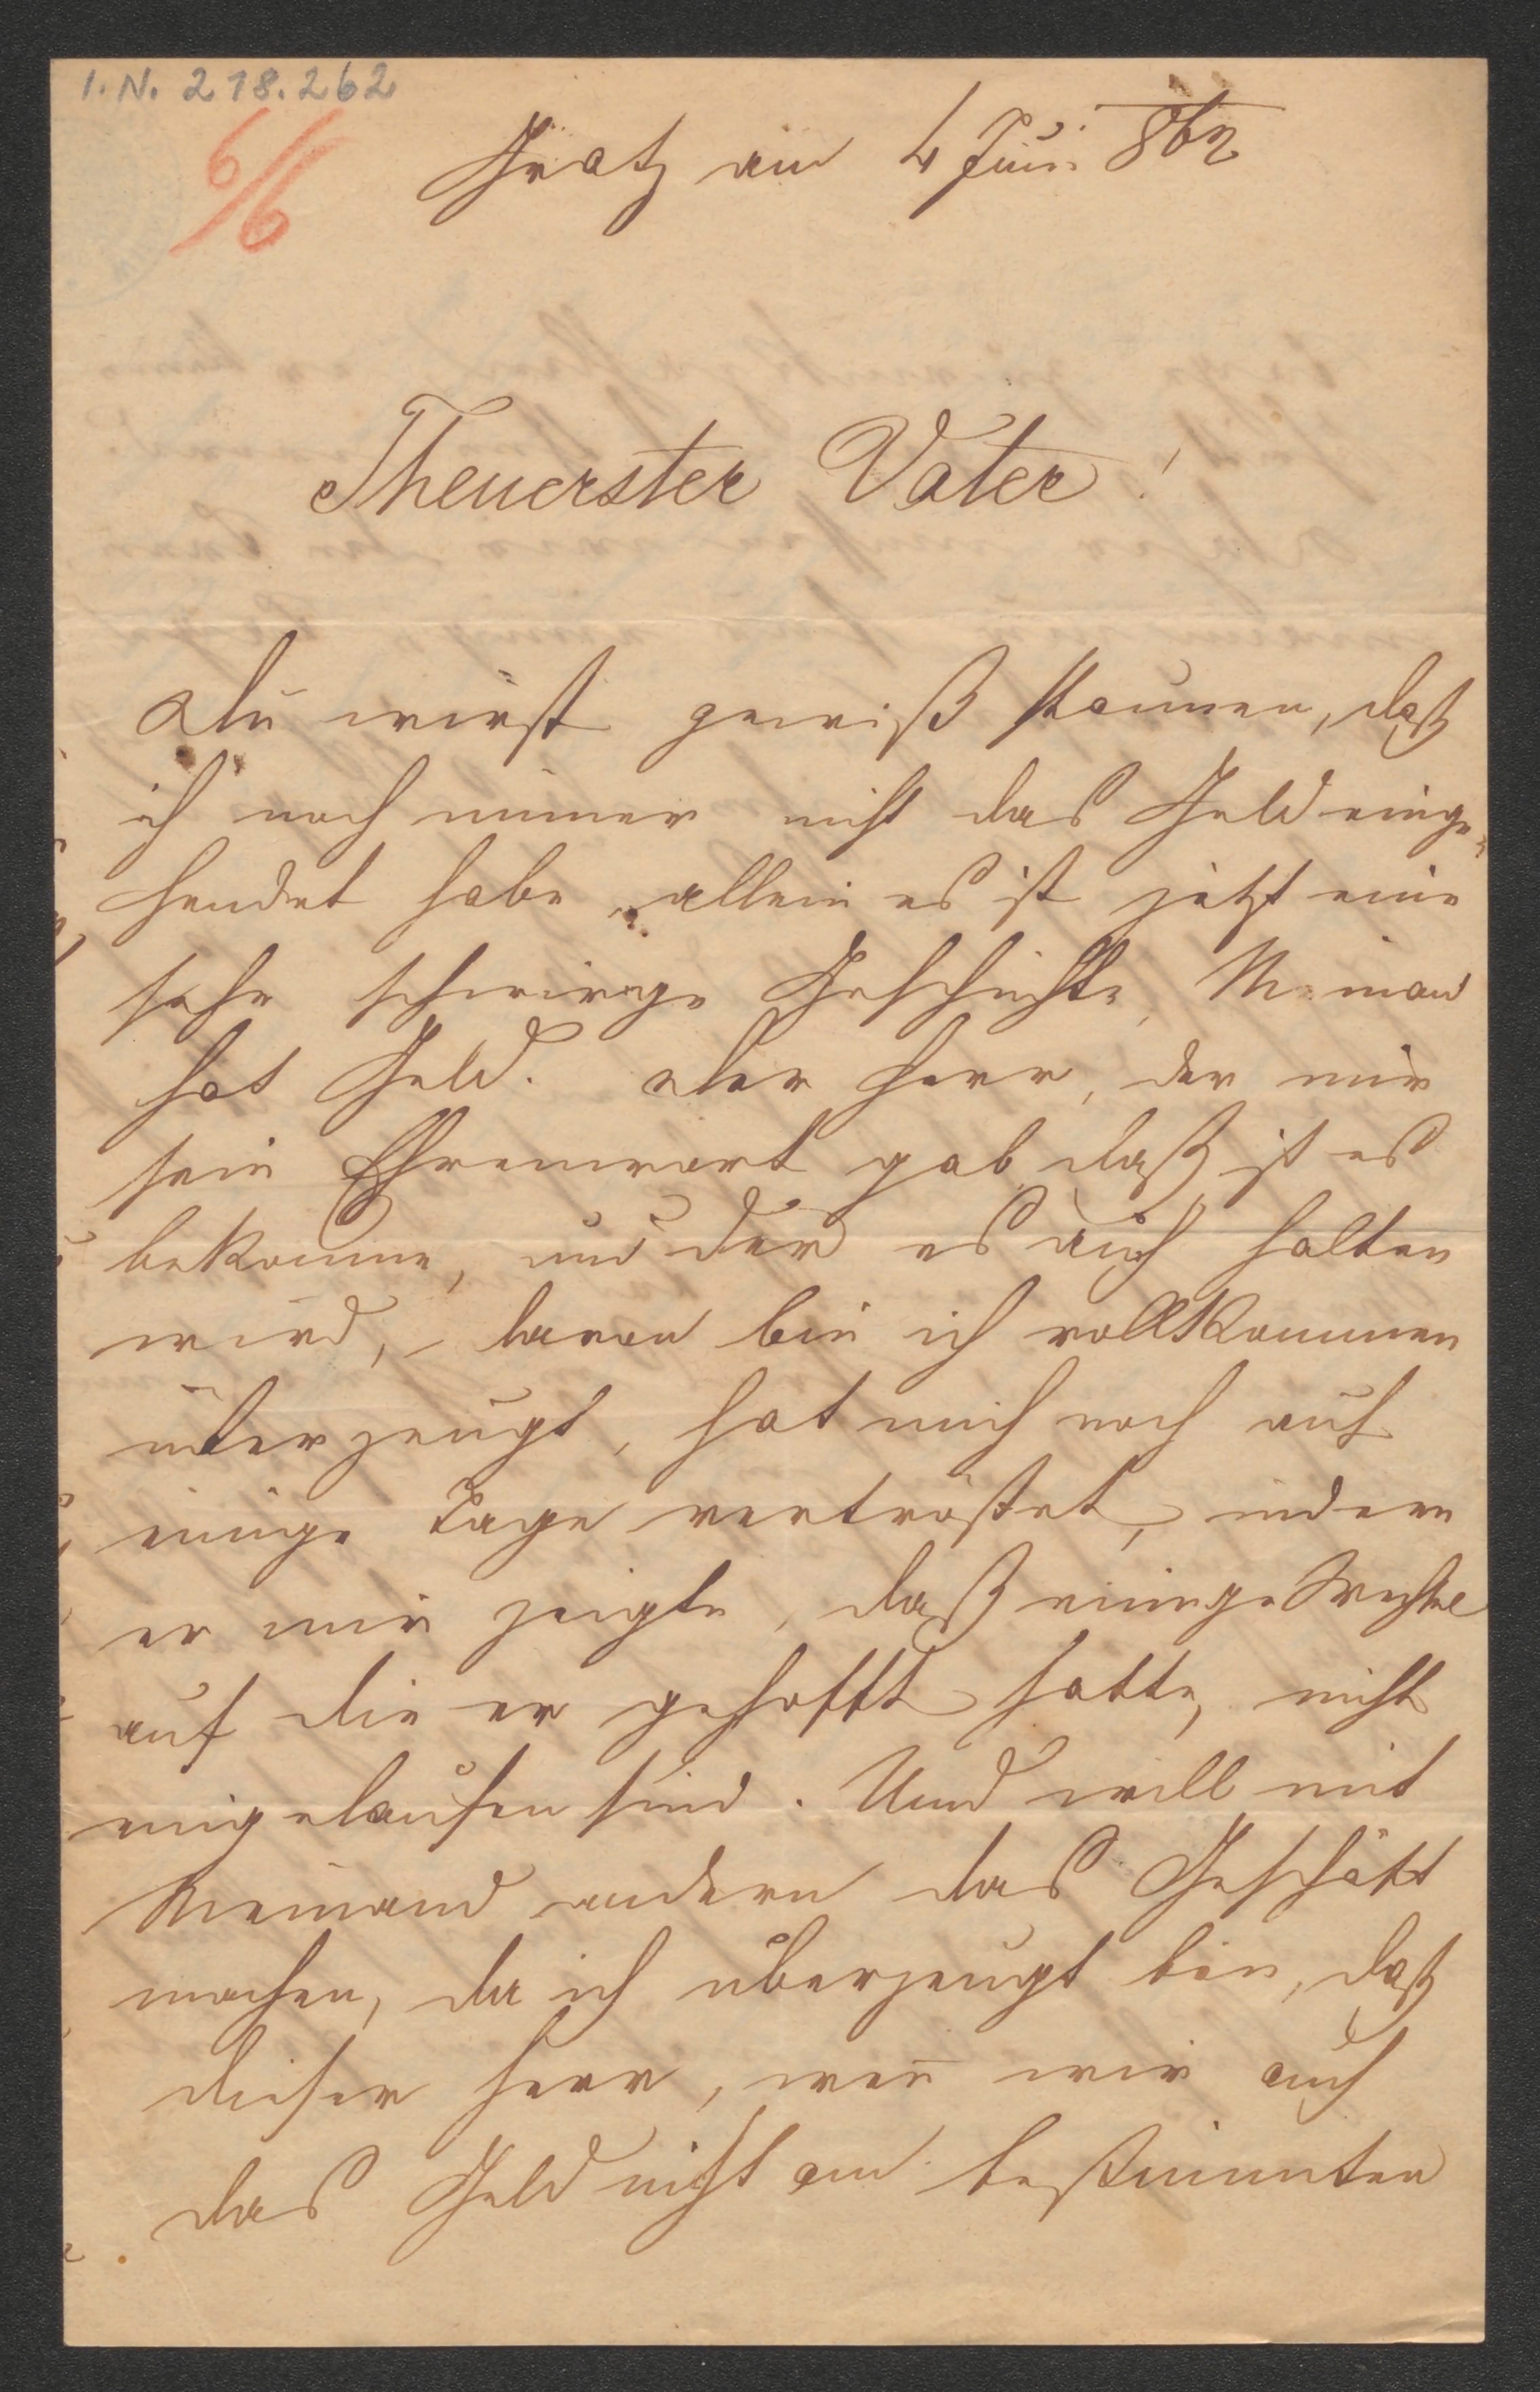 I.N. 218.262
6/6
Gratz am 4 Juni 862
Theuerster Vater!
Du wirst gewiß staunen, daß
ich noch immer nicht das Geld einge-
sendet habe, allein es ist jetzt eine
sehr schwirige Geschichte, Niemand
hat Geld. Der Herr, der mir
sein Ehrenwort gab, daß ich es
bekomme, und der es auch halten
wird, – davon bin ich vollkommen
überzeugt, hat mich noch auf
einige Tage vertröstet, indem
er mir zeigte, daß einige Wechsel
auf die er gehofft hatte, nicht
eingelaufen sind. Und will mit
Niemand andern das Geschäft
machen, da ich überzeugt bin, daß
dieser Herr, wen̅ wir auch
das Geld nicht am bestimmten